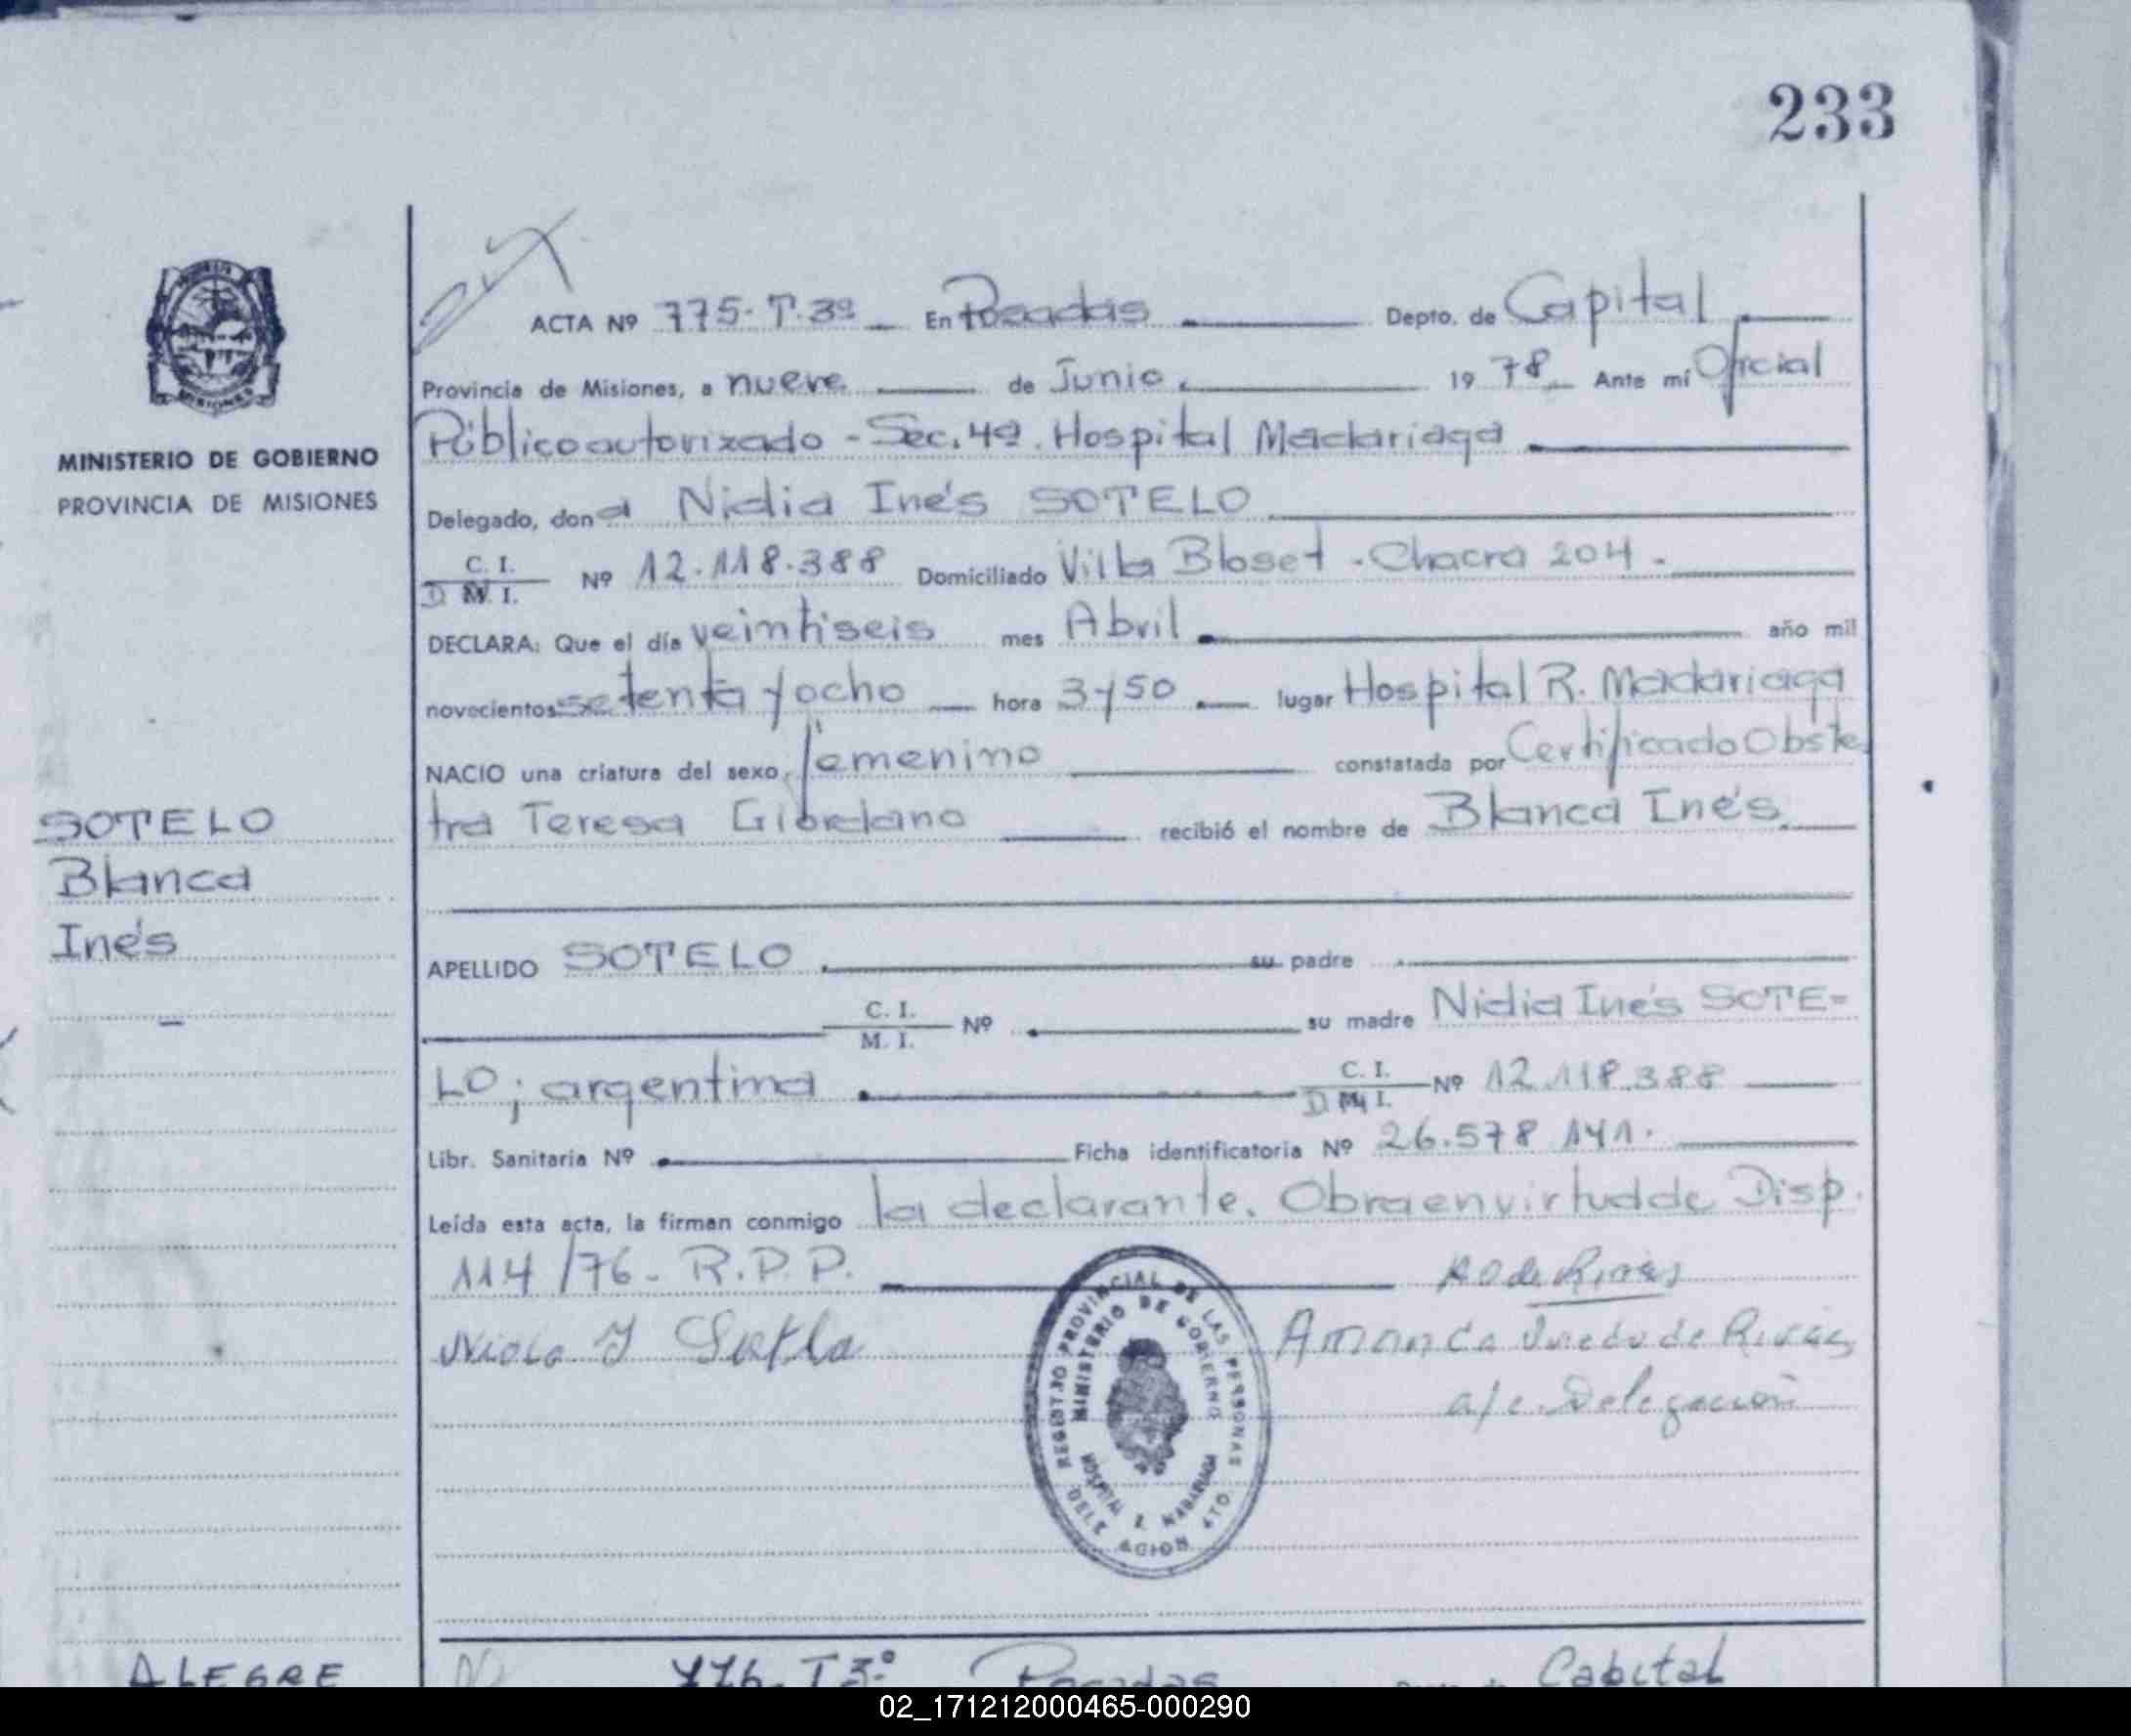 233
ACTA Nº 775-T.3º En Posadas Depto. de Capital
Provincia de Misiones, a nueve de Junio 1978 Ante mí Oficial
Público autorizado - Sec. 4ª. Hospital Madariaga
MINISTERIO DE GOBIERNO
PROVINCIA DE MISIONES
Delegado, dona Nidia Inés SOTELO
C. I.
D M. I. Nº 12.118.388 Domiciliado Villa Bloset - Chacra 204 -
DECLARA: Que el día veintiseis mes Abril año mil
novecientos setenta y ocho hora 3y50 lugar Hospital R. Madariaga
NACIO una criatura del sexo femenino constatada por Certificado Obste
tra Teresa Giordano recibió el nombre de Blanca Inés
SOTELO
Blanca
Inés
APELLIDO SOTELO su padre
C. I.
M. I. Nº su madre Nidia Inés SOTE=
LO; argentina C. I.
D M. I. Nº 12.118.388
Libr. Sanitaria Nº Ficha identificatoria Nº 26.578 141.
Leída esta acta, la firman conmigo la declarante. Obra en virtud de Disp.
114/76- R.P.P.
REGISTRO PROVINCIAL DE LAS PERSONAS
MINISTERIO DE GOBIERNO
HOSPITAL
DELEGACION
Amanda de Rivas
a/c. Delegación
ALEGRE 776. T3º Posadas Capital
02_171212000465-000290